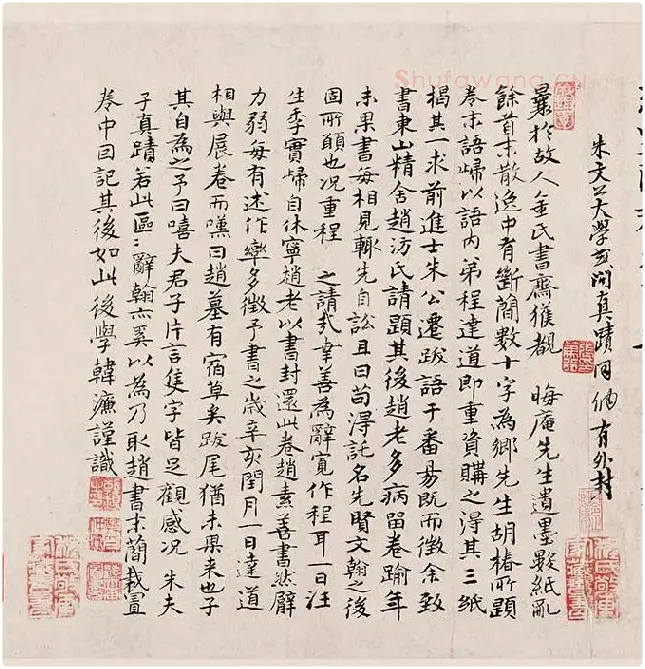 Shufawang.CN
朱文公大學或問真蹟同納有外封
曩於故人金氏書齋獲觀 晦庵先生遺墨數紙亂
餘首末散逸中有斷簡數十字為鄉先生胡椿所題
卷末語歸以語內弟程達道即重資購之得其三紙
揭其一求前進士朱公遷跋語于番昜既而徵余致
書東山精舍趙汸氏請題其後趙老多病留卷踰年
未果書每相見輒先自訟且曰苟得託名先賢文翰之後
固所願也况重程 之請弍幸善為辭寬作程耳一日汪
生季實歸自休寧趙老以書封還此卷趙素善書然臂
力弱每有述作率多徵予書之歲辛亥閏月一日達道
相與展卷而嘆曰趙墓有宿草矣跋尾猶未果来也子
其自為之予曰嘻夫君子片言隻字皆足觀感况 朱夫
子真蹟若此區〻辭翰亦奚以為乃取趙書末簡裁置
卷中因記其後如此後學韓濂謹識